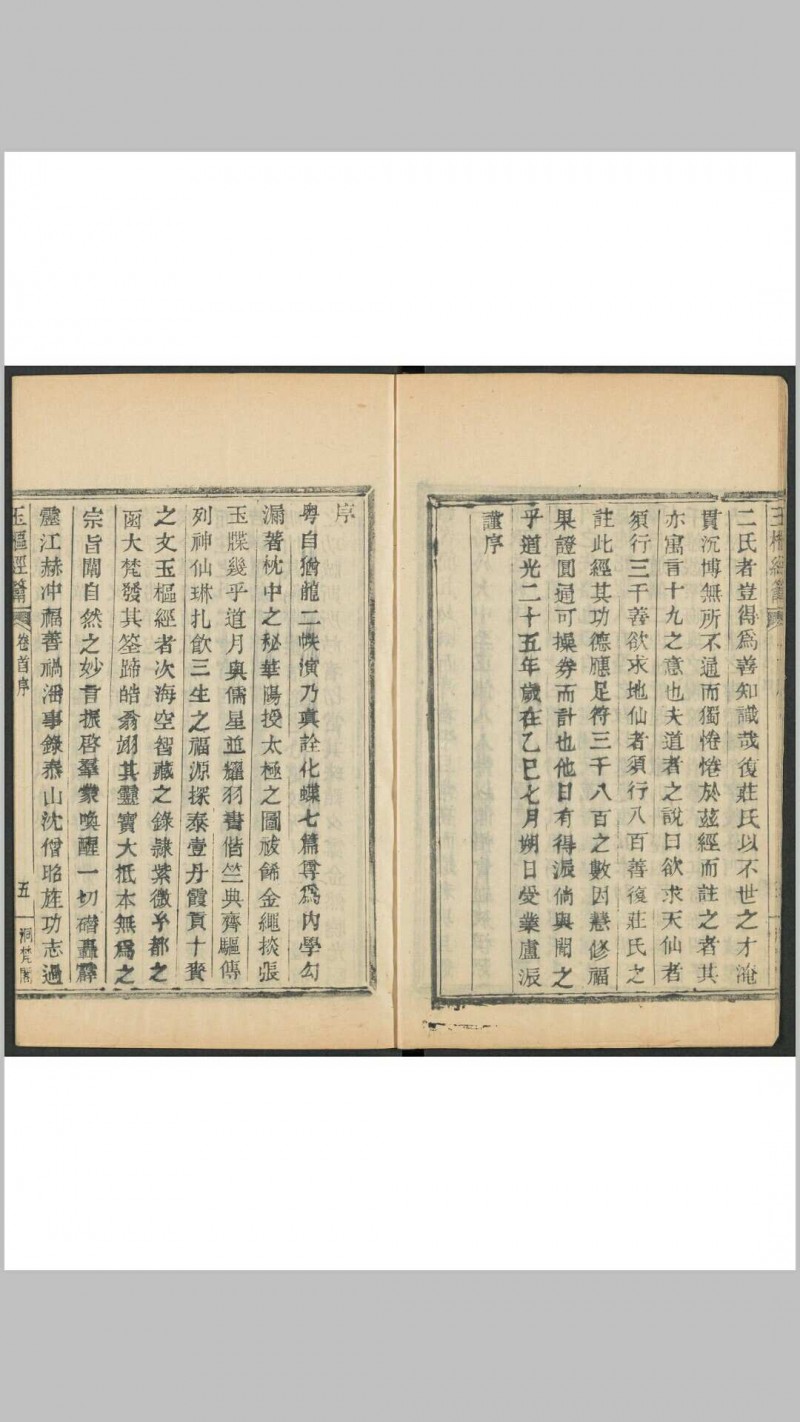 二氏者豈得爲善知識哉復莊氏以不世之才淹
貫沉博無所不通而獨惓惓於茲經而註之者其
亦寓言十九之意也夫道者之說曰欲求天仙者
須行三千善欲求地仙者須行八百善復莊氏之
註此經其功德應足符三千八百之數因慧修福
果證圓通可操券而計也他日有得派倘與聞之
乎道光二十五年歲在乙巳七月朔日受業盧派
謹序
序
粵自猶龍二帙演乃真詮化蝶七篇尊爲內學勾
漏著枕中之秘華陽授太極之圖祓餙金繩掞張
玉牒幾乎道月與儒星並耀羽書偕竺典齊驅傳
列神仙琳札飲三生之福源探泰壹丹霞貢十賚
之文玉樞經者次海空智藏之錄隸紫微乎都之
函大梵發其筌蹄皓翁翊其靈寶大抵本無爲之
宗旨闡自然之妙言振啓羣蒙喚醒一切礌轟霹
靂江赫冲福善禍潘事錄泰山沈僧昭旌功志過
玉樞經籥
卷首序
五
洞梵閣